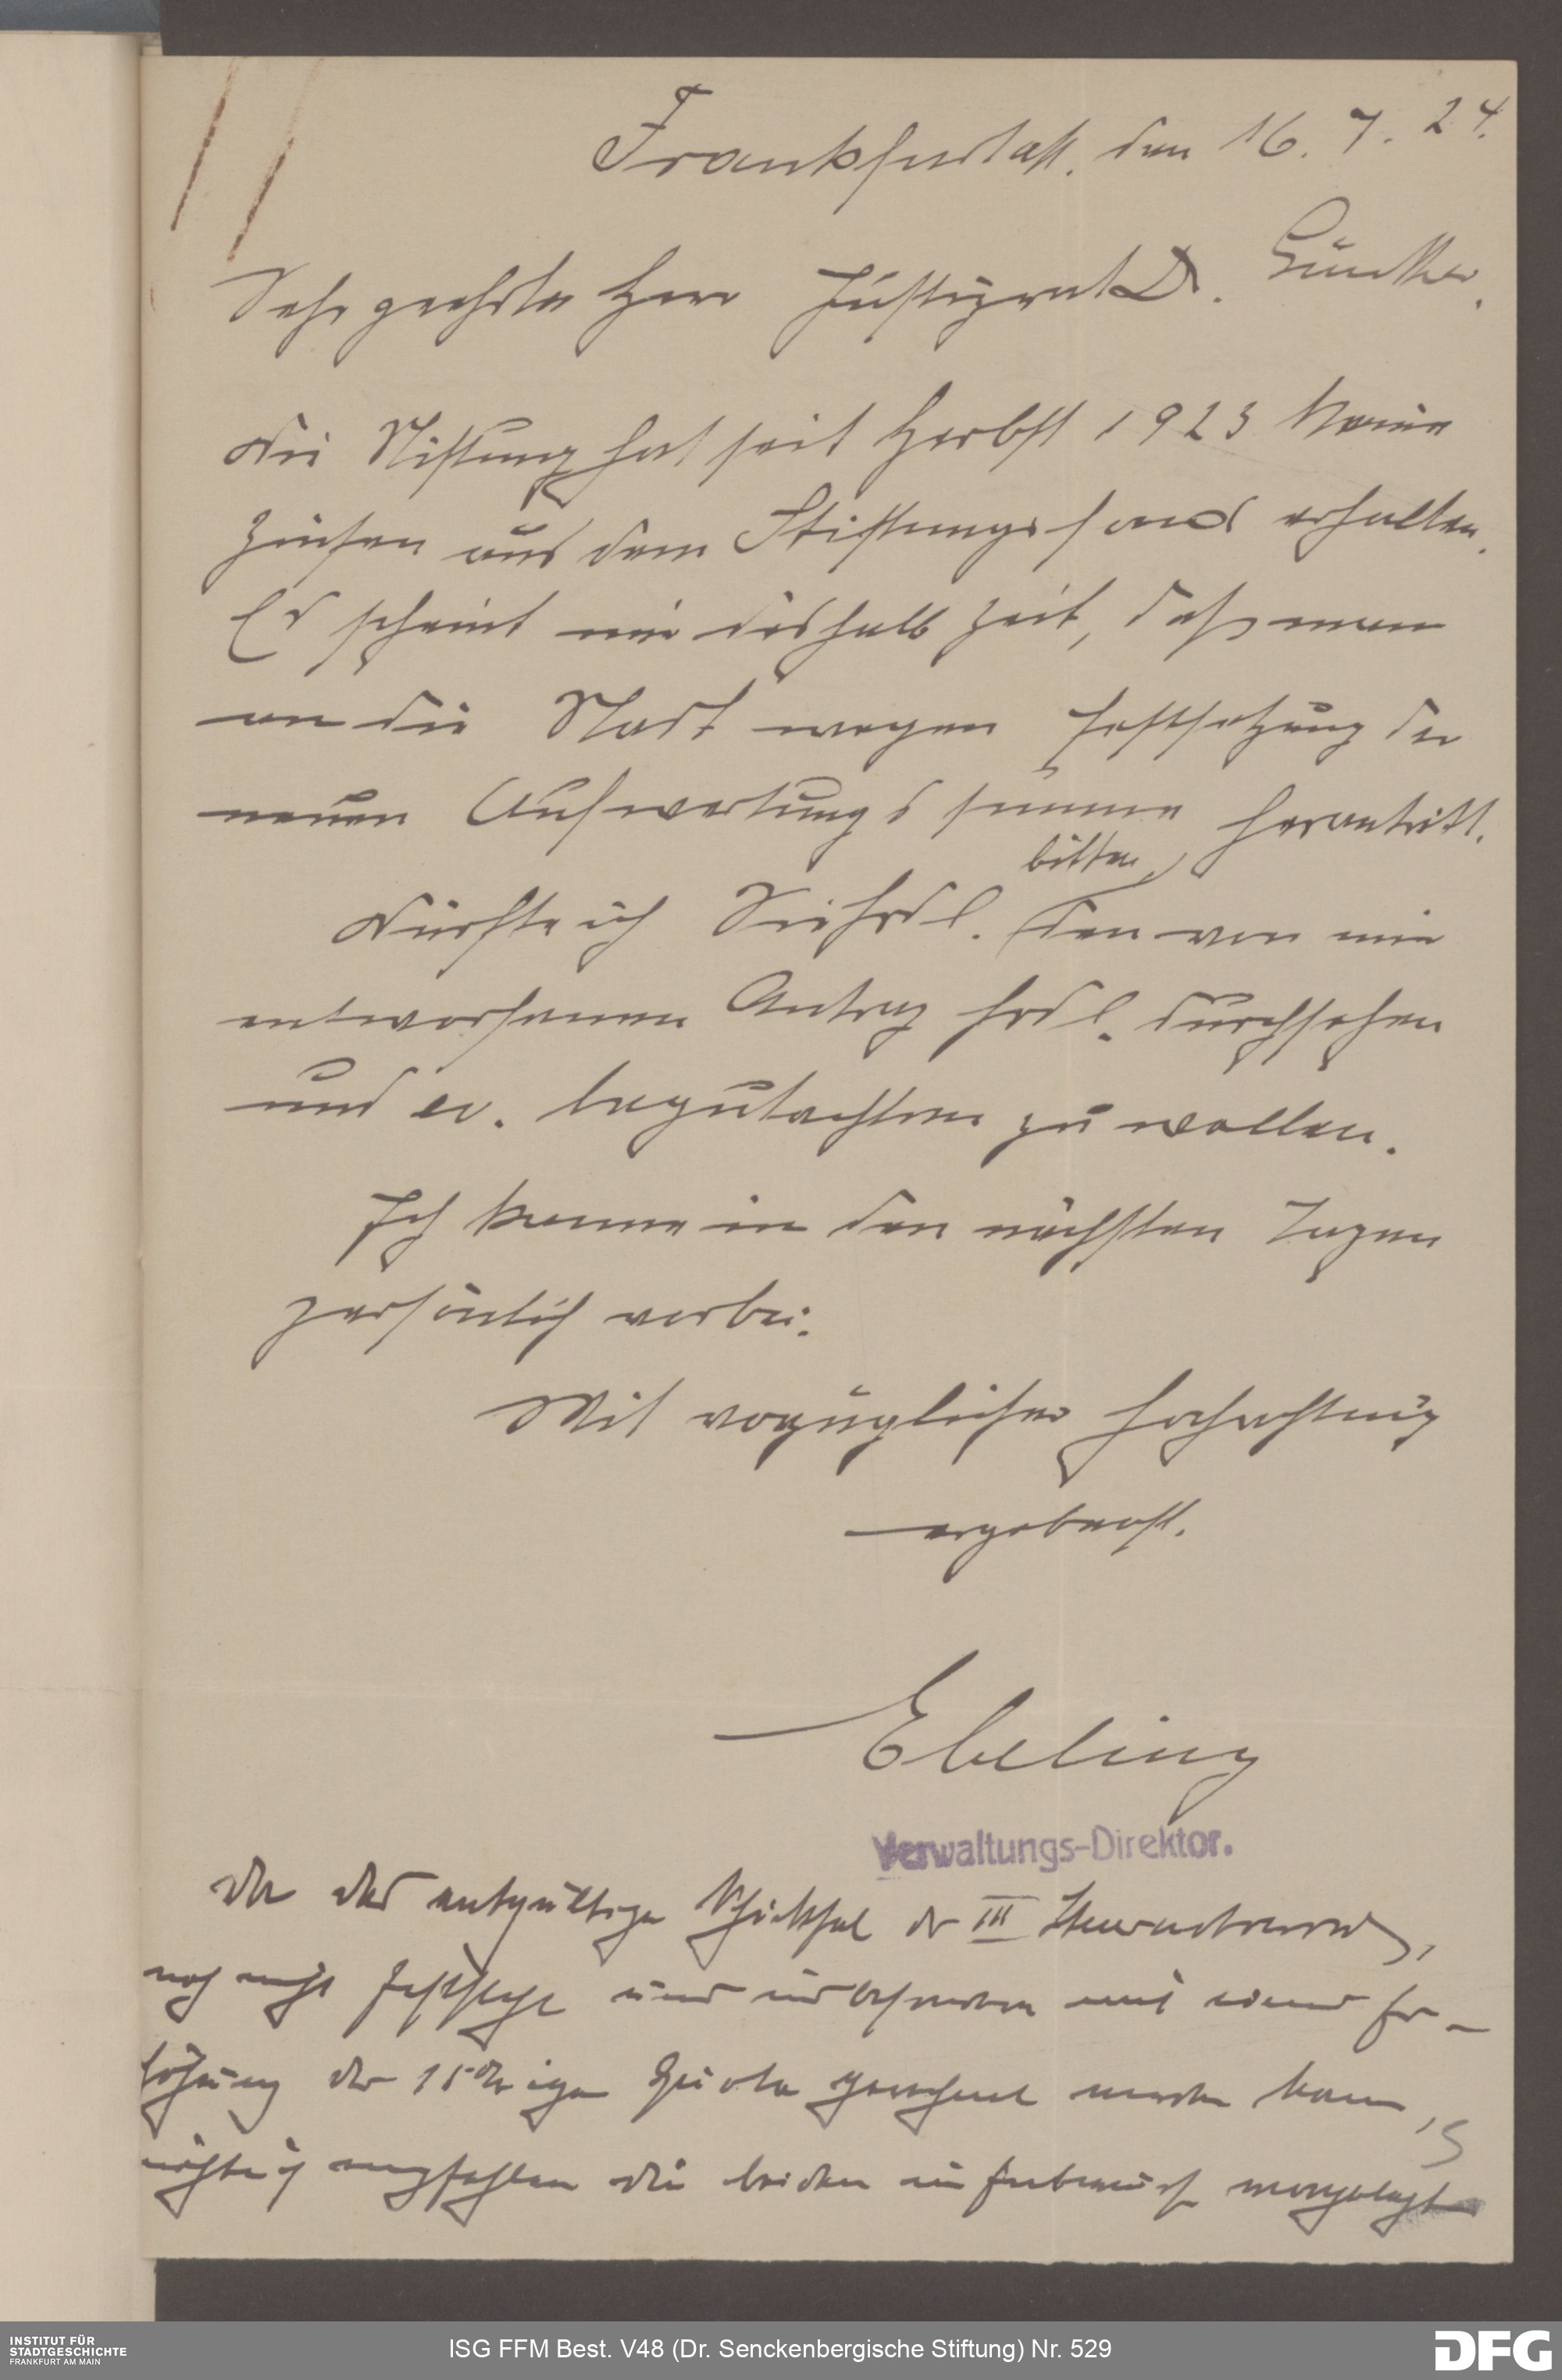 Frankfurt a/M. den 16. 7. 24.
Sehr geehrter Herr Justizrat Dr. Günther.
Die Stiftung hat seit Herbst 1923 keine
Zinsen aus dem Stiftungsfonds erhalten.
Es scheint mir deshalb Zeit, daß man
an die Stadt wegen Festsetzung der
neuen Aufwertungssumme herantritt.
bitten,
Dürfte ich Sie frdl. den von mir
entworfenen Antrag frdl. durchsehen
und ev. begutachten zu wollen.
Ich komme in den nächsten Tagen
persönlich vorbei.
Mit vorzüglicher Hochachtung
ergebenst.
Ebeling
Verwaltungs-Direktor.
Da das entgültige Schicksal der III
noch nicht feststeht und mit einer Er-
höhung der 15%igen Quote gerechnet werden kann,
möchte ich empfehlen die beiden im Entwurf vorgelegt
INSTITUT FÜR
STADTGESCHICHTE
FRANKFURT AM MAIN
ISG FFM Best. V48 (Dr. Senckenbergische Stiftung) Nr. 529
DFG